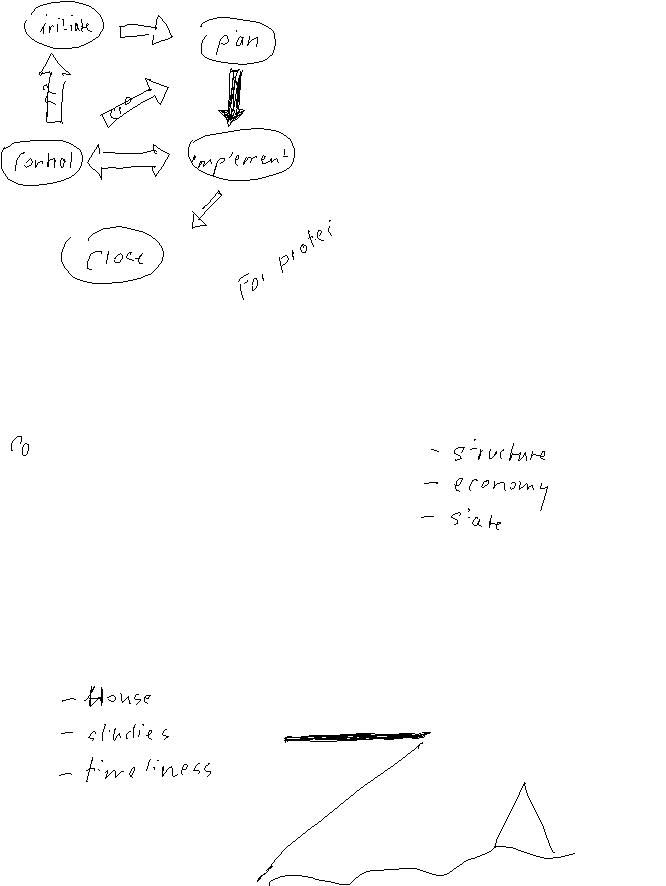 initiate
plan
control
implement
close
For protei
co
- structure
- economy
- state
- House
- studies
- timeliness